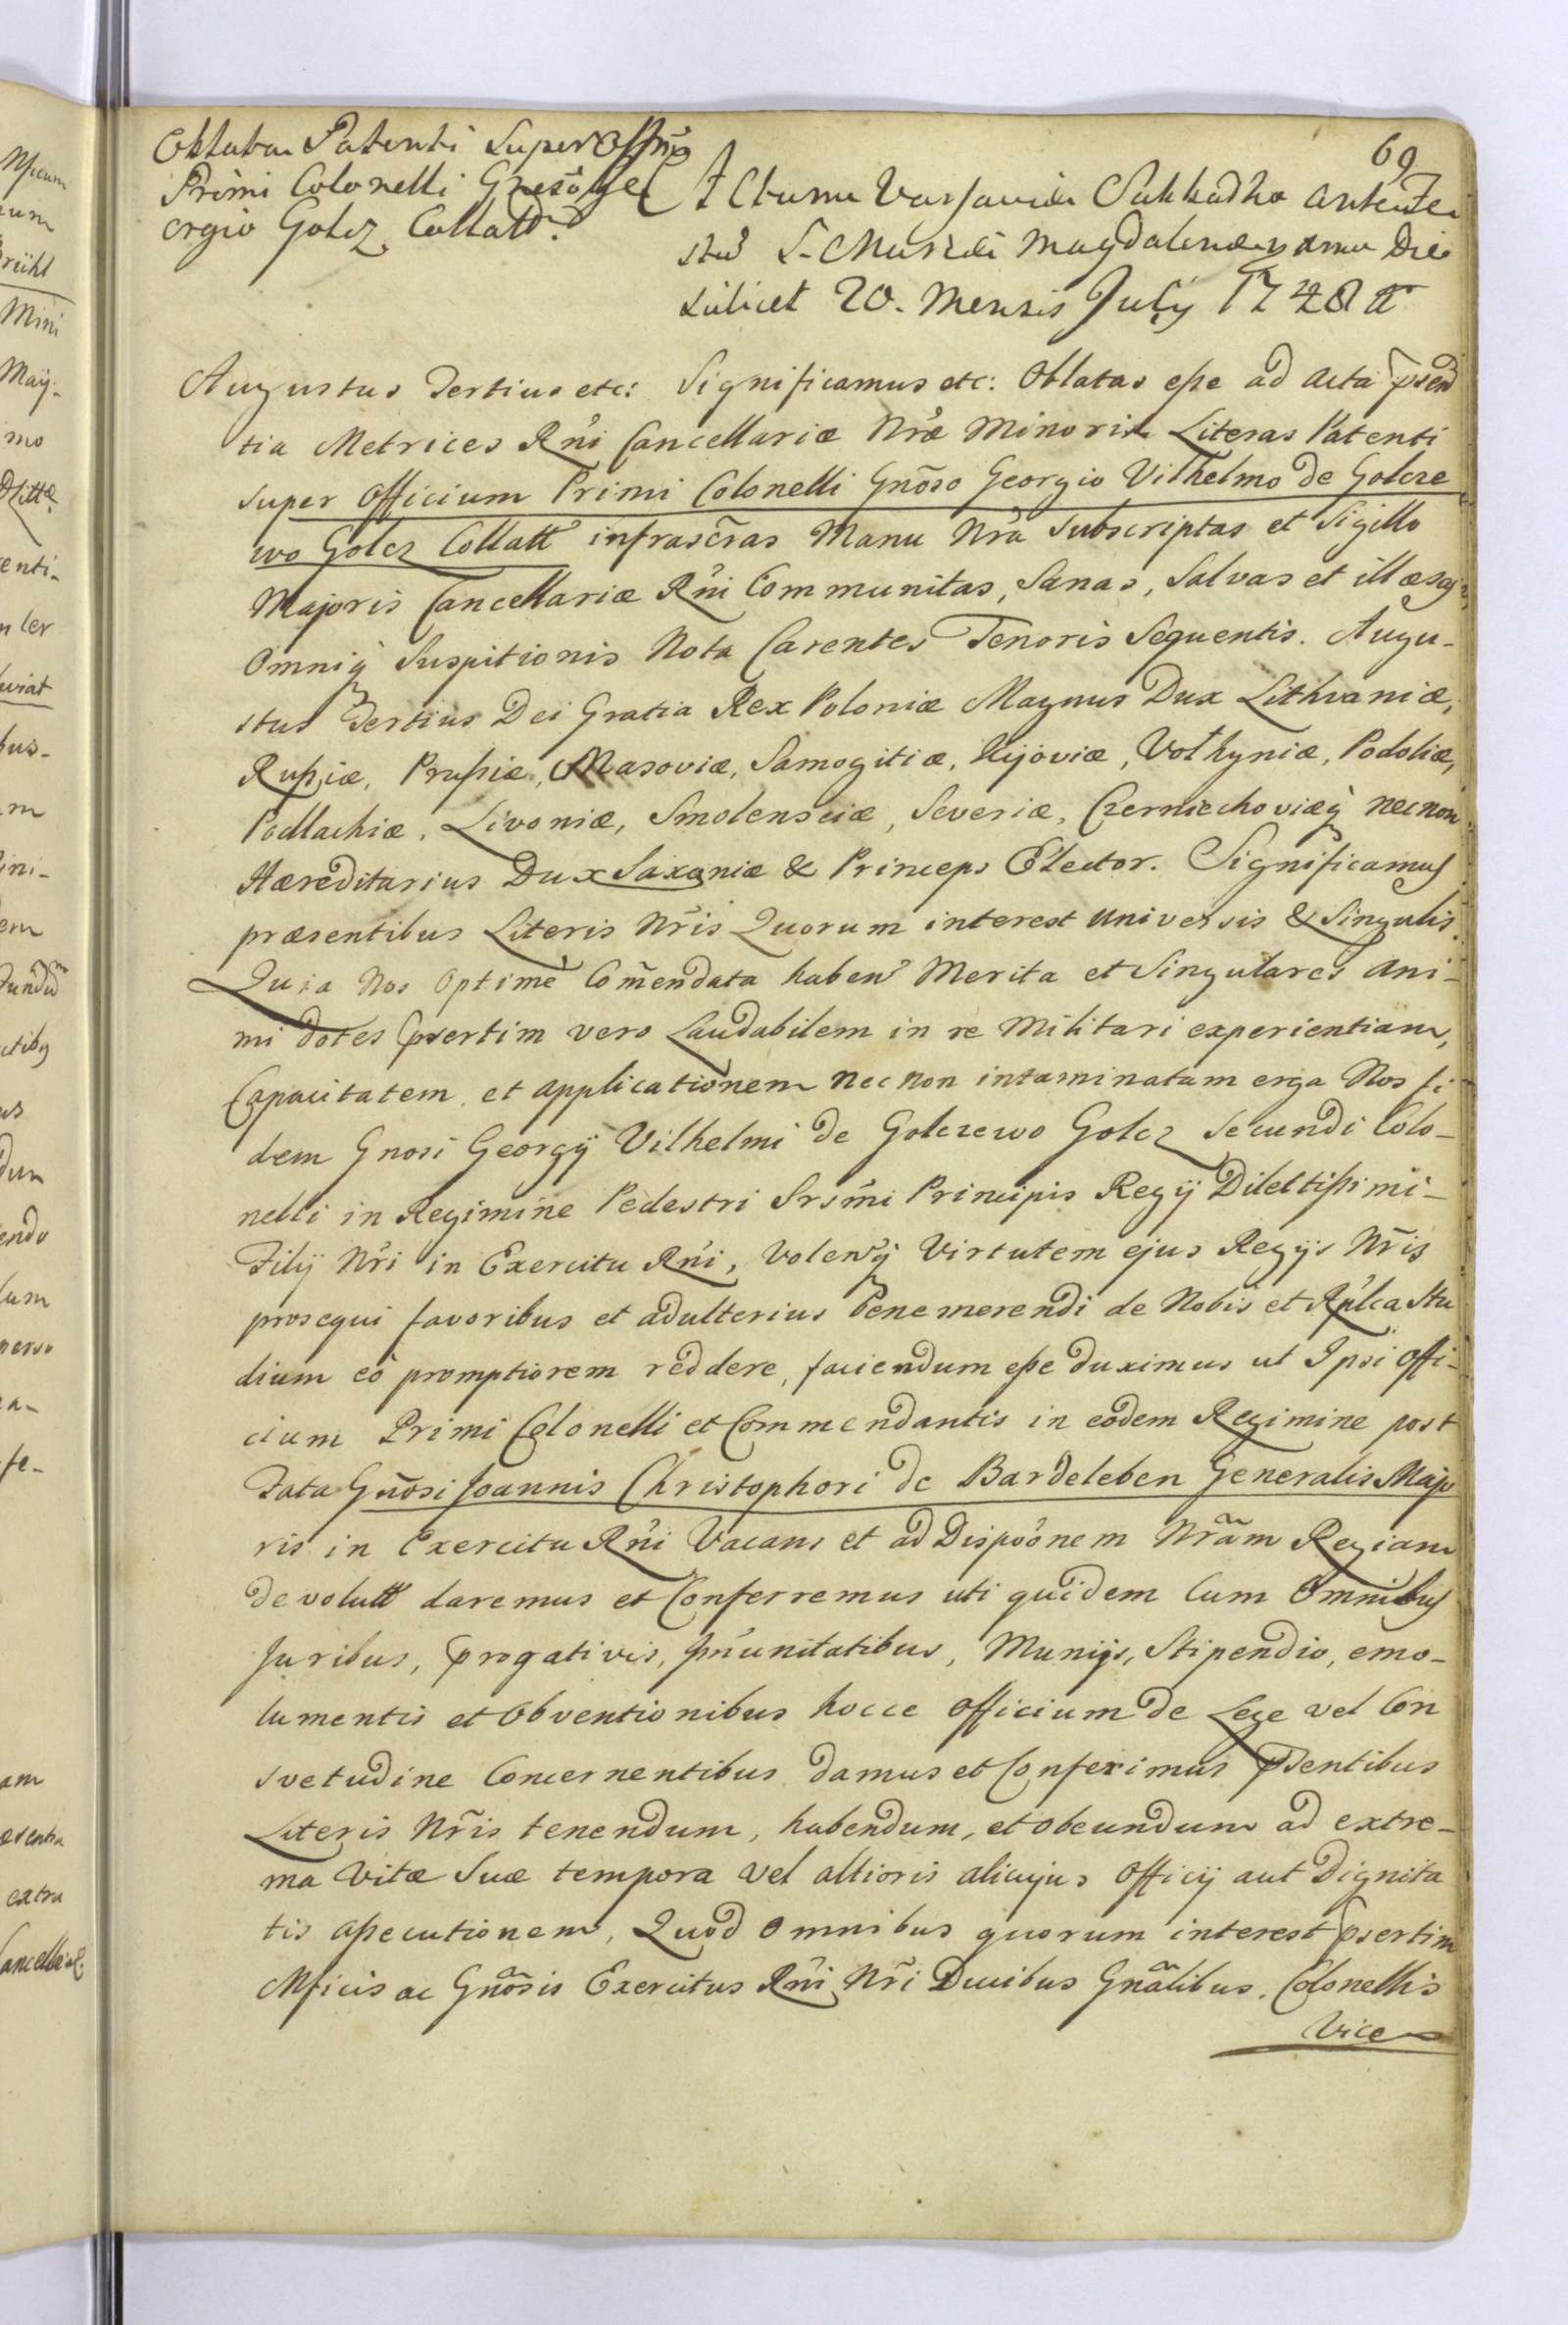 69
Oblata Patenti Super Offm
Primi Colonelli Gneso Ge
orgio Golcz Collatt.
Actum Varsaviæ Sabbatho ante Fe
stũ S. Mariæ Magdalenæ die
Scilicet 20. Mensis July 1748 a
Augustus Tertius etc: Significamus etc: Oblatas eße ad Acta Psen
tia Metrices Rñi Cancellariæ Nræ Minoris Literas Patenti
super Officium Primi Colonelli Gnõso Georgio Vilhelmo de Golcze
wo Golcz Collatt infrascras Manu Nrã Subscriptas et Sigillo
Majoris Cancellariæ Rñi Communitas, Sanas, Salvas et illæsas,
Omniq Suspitionis Nota Carentes Tenoris Sequentis. Augu-
stus Tertius Dei Gratia Rex Poloniæ Magnus Dux Lithvaniæ,
Rußiæ, Prußiæ, Masoviæ, Samogitiæ, Kijoviæ, Volhyniæ, Podoliæ,
Podlachiæ, Livoniæ, Smolensciæ, Severiæ, Czerniechoviæq necnon
Hæreditarius Dux Saxoniæ & Princeps Elector. Significamus
præsentibus Literis Nrîs Quorum interest Universis & Singulis.
Quia Nos Optimè Com̃endata haben̄ Merita et Singulares Ani-
mi dotes Psertim vero Laudabilem in re Militari experientiam,
Capacitatem et applicationem nec non intaminatam erga Nos fi
dem Gnosi Georgij Vilhelmi de Golczewo Golcz Secundi Colo-
nelli in Regimine Pedestri Srsm̃i Principis Regij Dilectißimi-
Filij Nr̃i in Exercitu Rñi, Volen̄q Virtutem ejus Regijs Nr̃is
prosequi favoribus et adulterius bene merendi de Nobis et Rplca Stu
dium eò promptiorem reddere, faciendum eße duximus ut Ipsi Offi-
cium Primi Colonelli et Commendantis in eodem Regimine post
Fata Gnõsi Joannis Christophori de Bardeleben Generalis Majo
ris in Exercitu Rñi Vacans et ad Dispoõnem Nrãm Regiam
devolutt daremus et Conferremus uti quidem Cum Omnibus
Juribus, Progativis, Im̃unitatibus, Munijs, Stipendio, emo-
lumentis et Obventionibus hocce Officium de Lege vel Con
svetudine Concernentibus damus et Conferimus Psentibus
Literis Nr̃is tenendum, habendum, et obeundum ad extre-
ma Vitæ Suæ tempora vel altioris alicujus Officij aut Dignita
tis aßecutionem, Quod Omnibus quorum interest Psertim
Mficis ac Gnõsis Exercitus Rñi Nr̃i Ducibus Gnãlibus, Colonellis
Vice